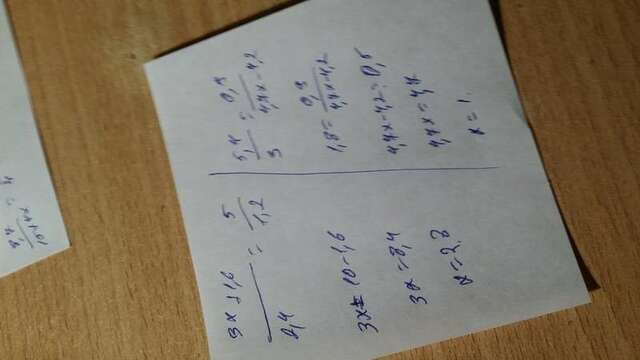 3x+1,6 / 2,4 = 5 / 1,2
3x = 10-1,6
3x = 8,4
x = 2,8
5,4 / 3 = 0,9 / 4,7x-4,2
1,8 = 0,9 / 4,7x-4,2
4,7x-4,2 = 0,5
4,7x = 4,7
x = 1.